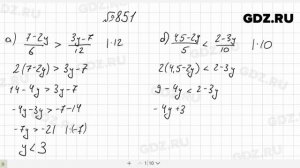 GDZ.RU
№851
а) (7-2y)/6 > (3y-7)/12 |·12
2(7-2y) > 3y-7
14-4y > 3y-7
-4y-3y > -7-14
-7y > -21 |:(-7)
y < 3
б) (4,5-2y)/5 < (2-3y)/10 |·10
2(4,5-2y) < 2-3y
9-4y < 2-3y
-4y+3
1:10
GDZ.RU